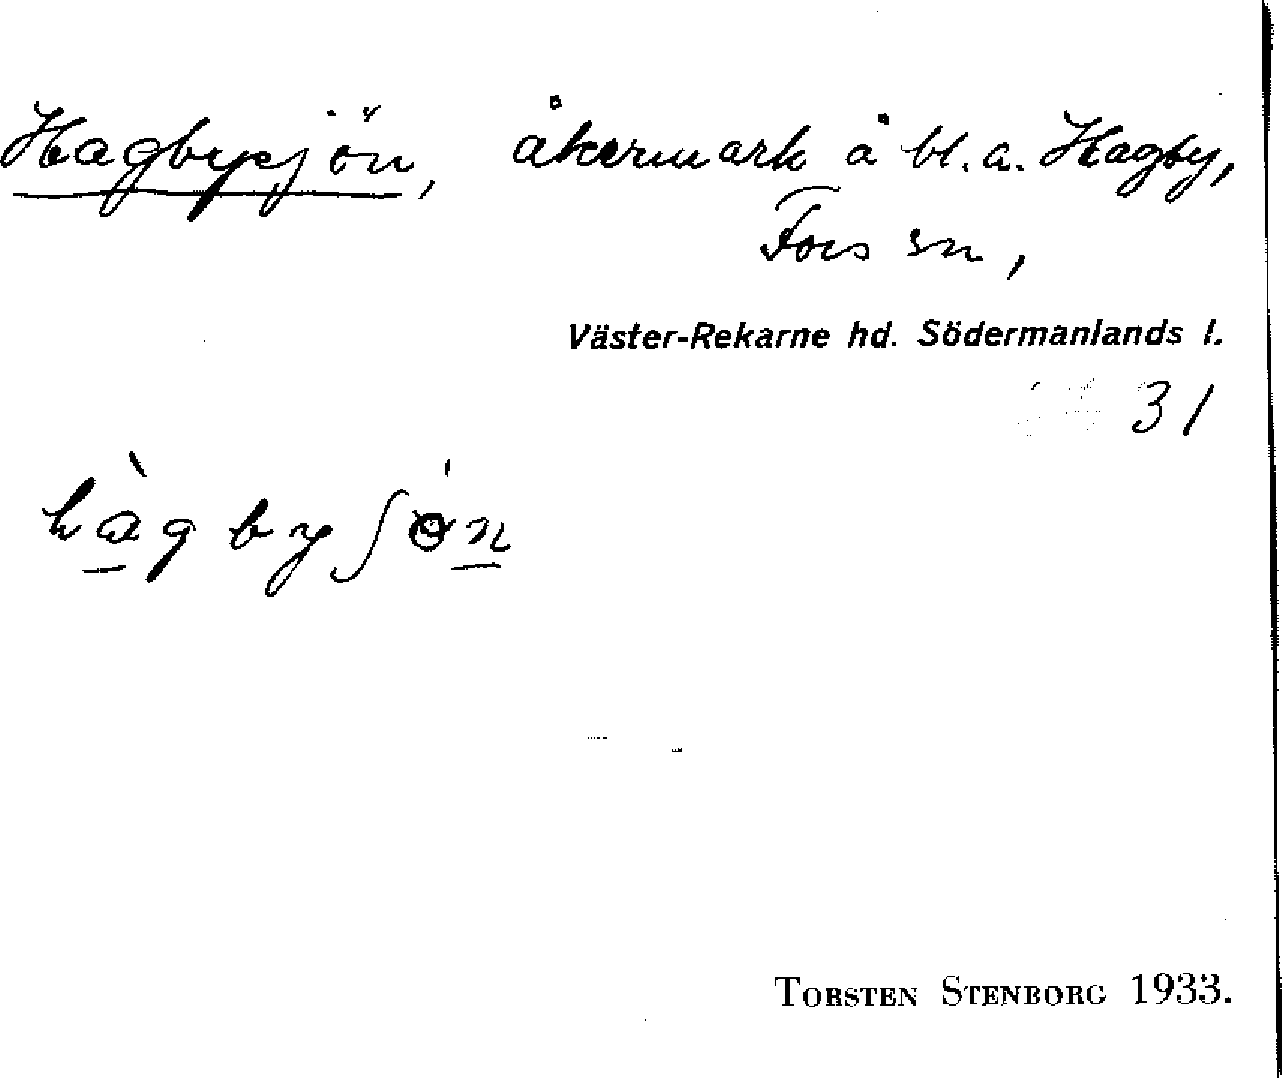 Hagbysjön, åkermark å bl. a. Hagby,
Fors sn,
Väster-Rekarne hd. Södermanlands l.
31
hàgbyʃøn
TORSTEN STENBORG 1933.